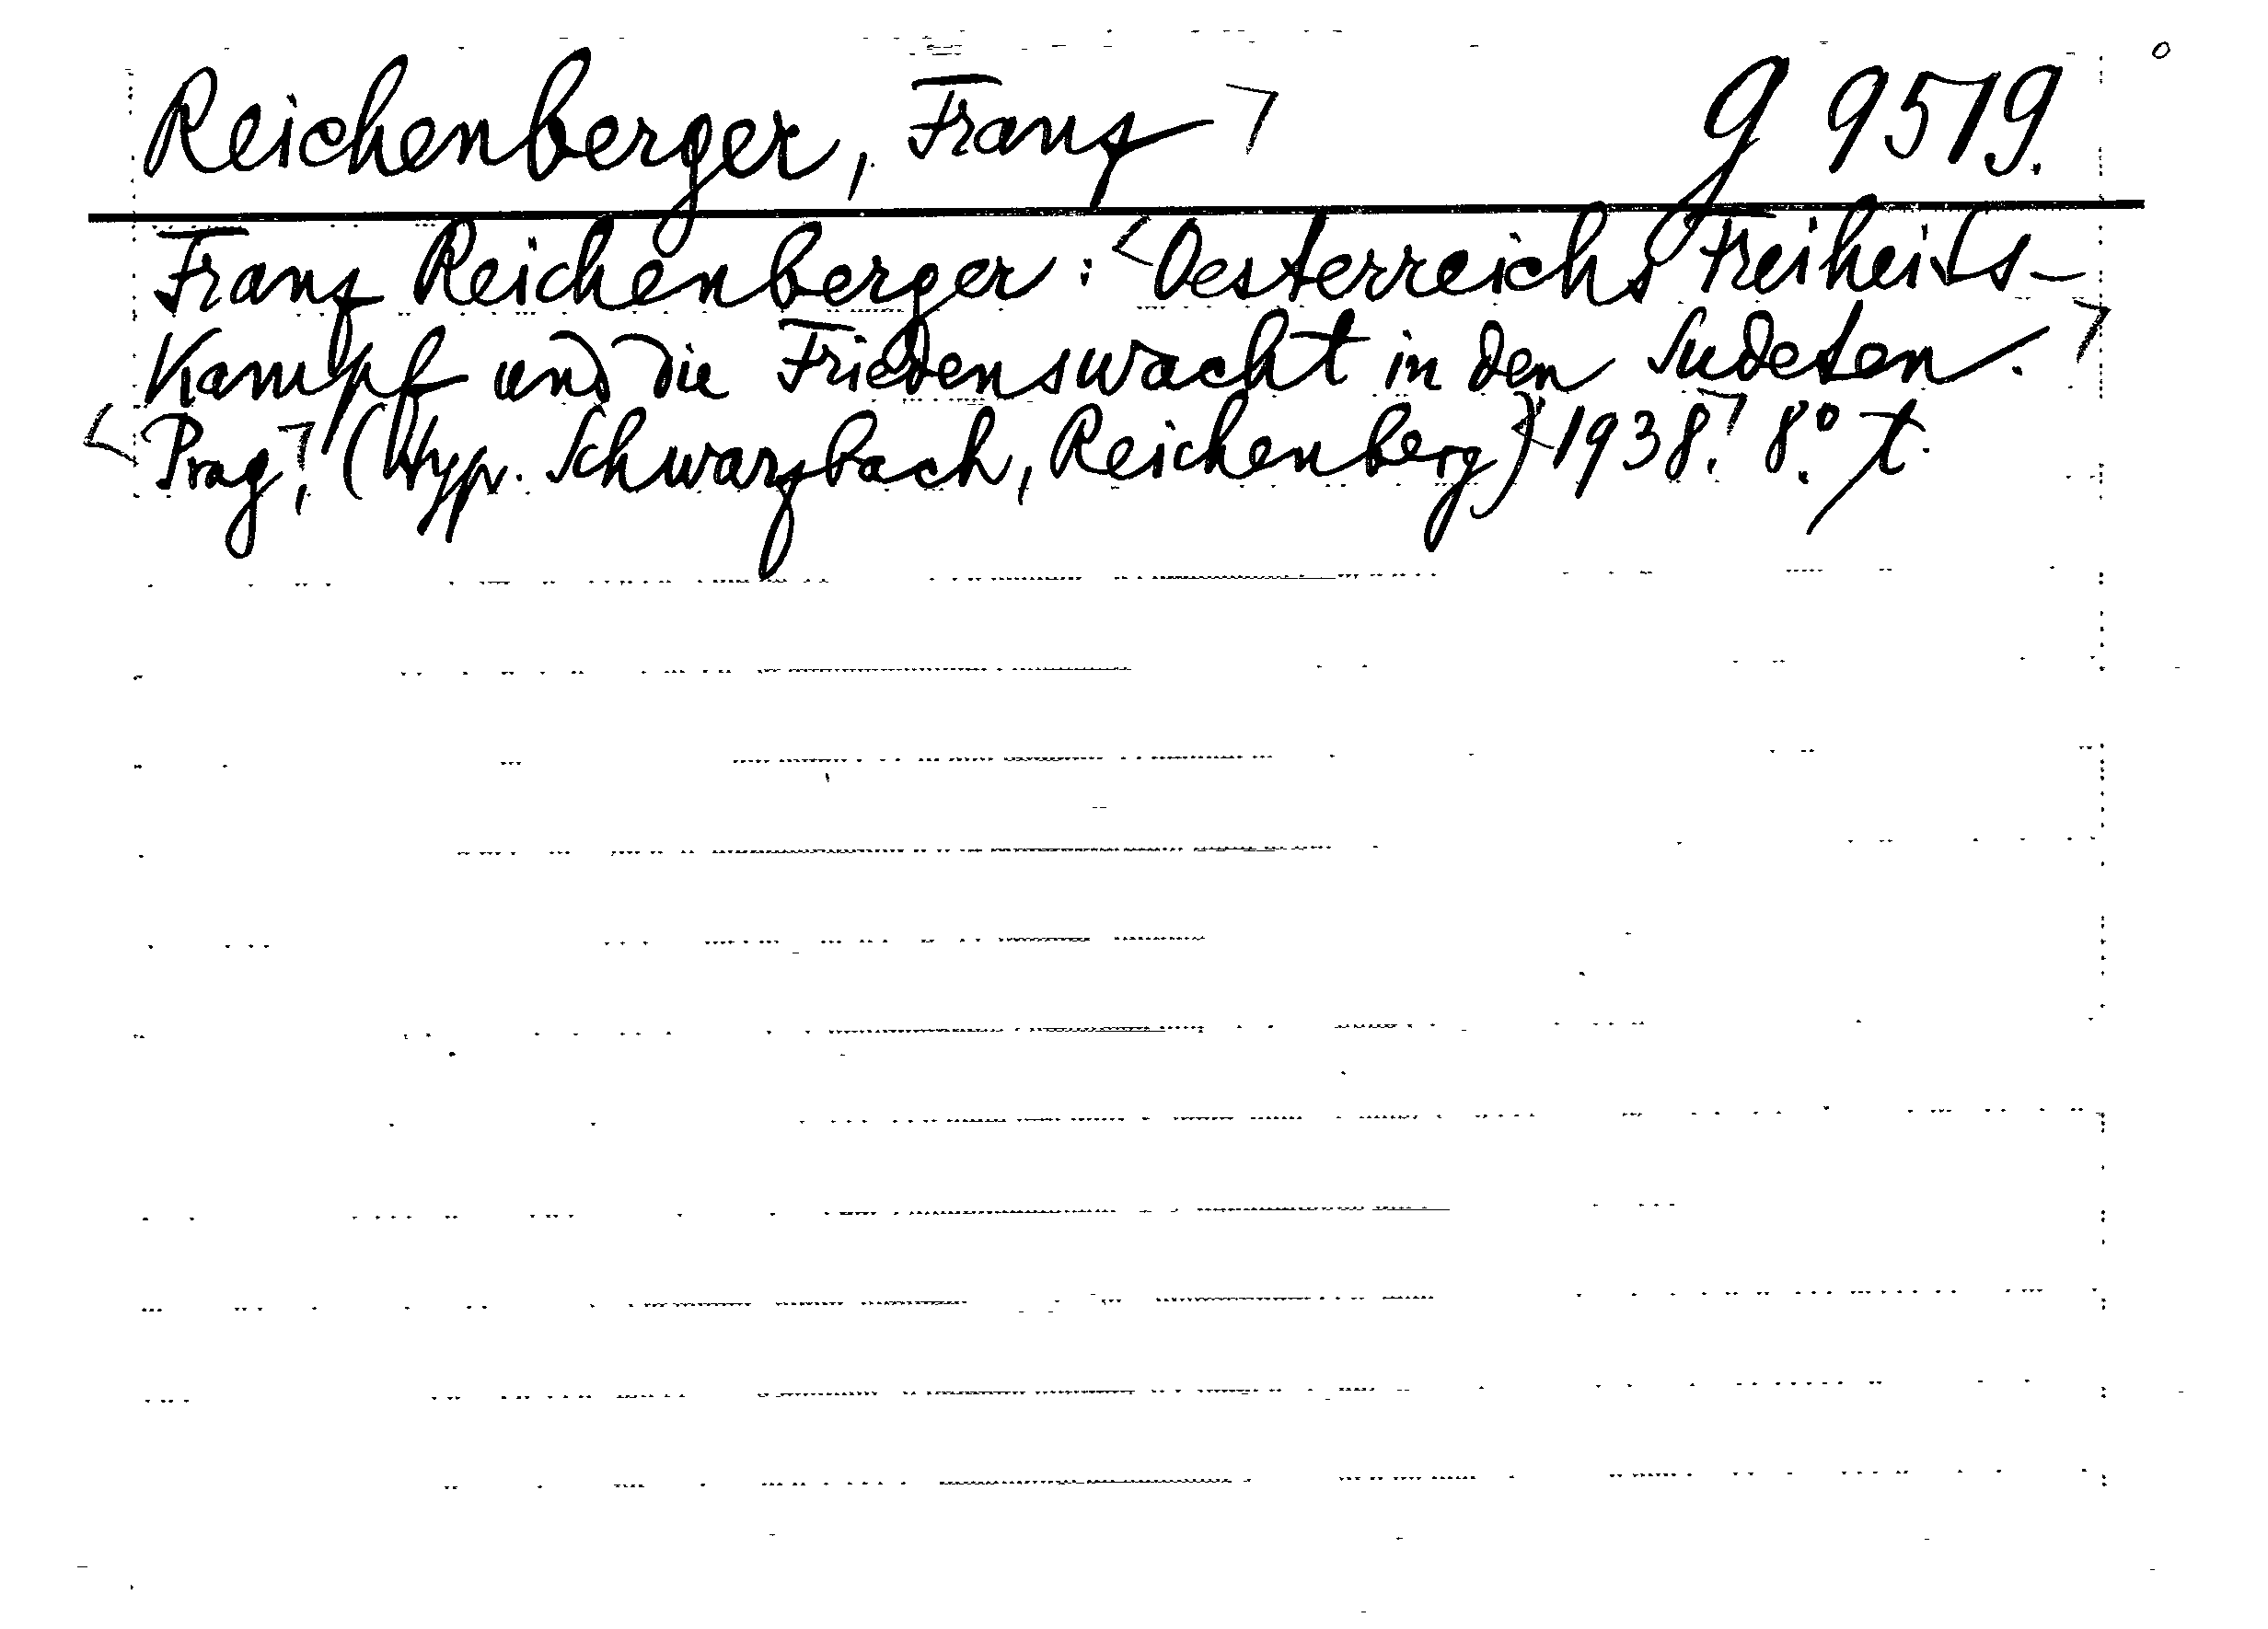 Reichenberger, Franz ⌝ G 9519.
Franz Reichenberger: <Oesterreichs Freiheits-
Kampf und die Friedenswacht in den Sudeten. ⌝
<Prag⌝, (Typ. Schwarzbach, Reichenberg) <1938⌝. 8°. t.